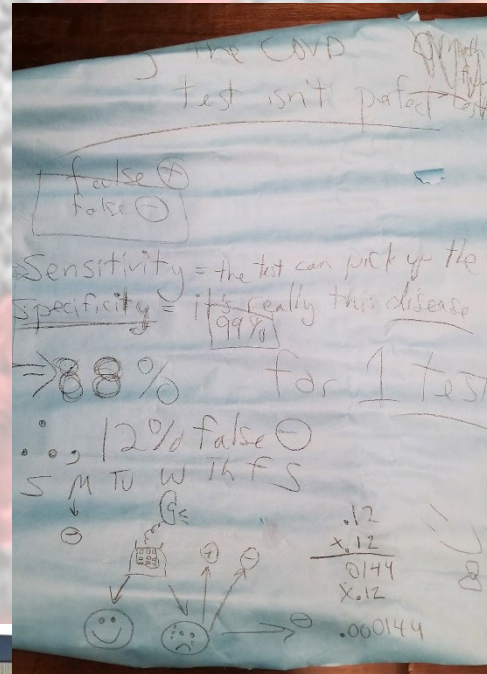 the COVD
test isn't perfect test
false ⊕
false ⊖
Sensitivity = the test can pick up the
Specificity = it's really this disease
99%
⇒ 88% for 1 test
∴, 12% false ⊖
S M TU W Th F S
⊖
⊕ ⊖
⊖
.12
x.12
0144
x.12
.000144
8